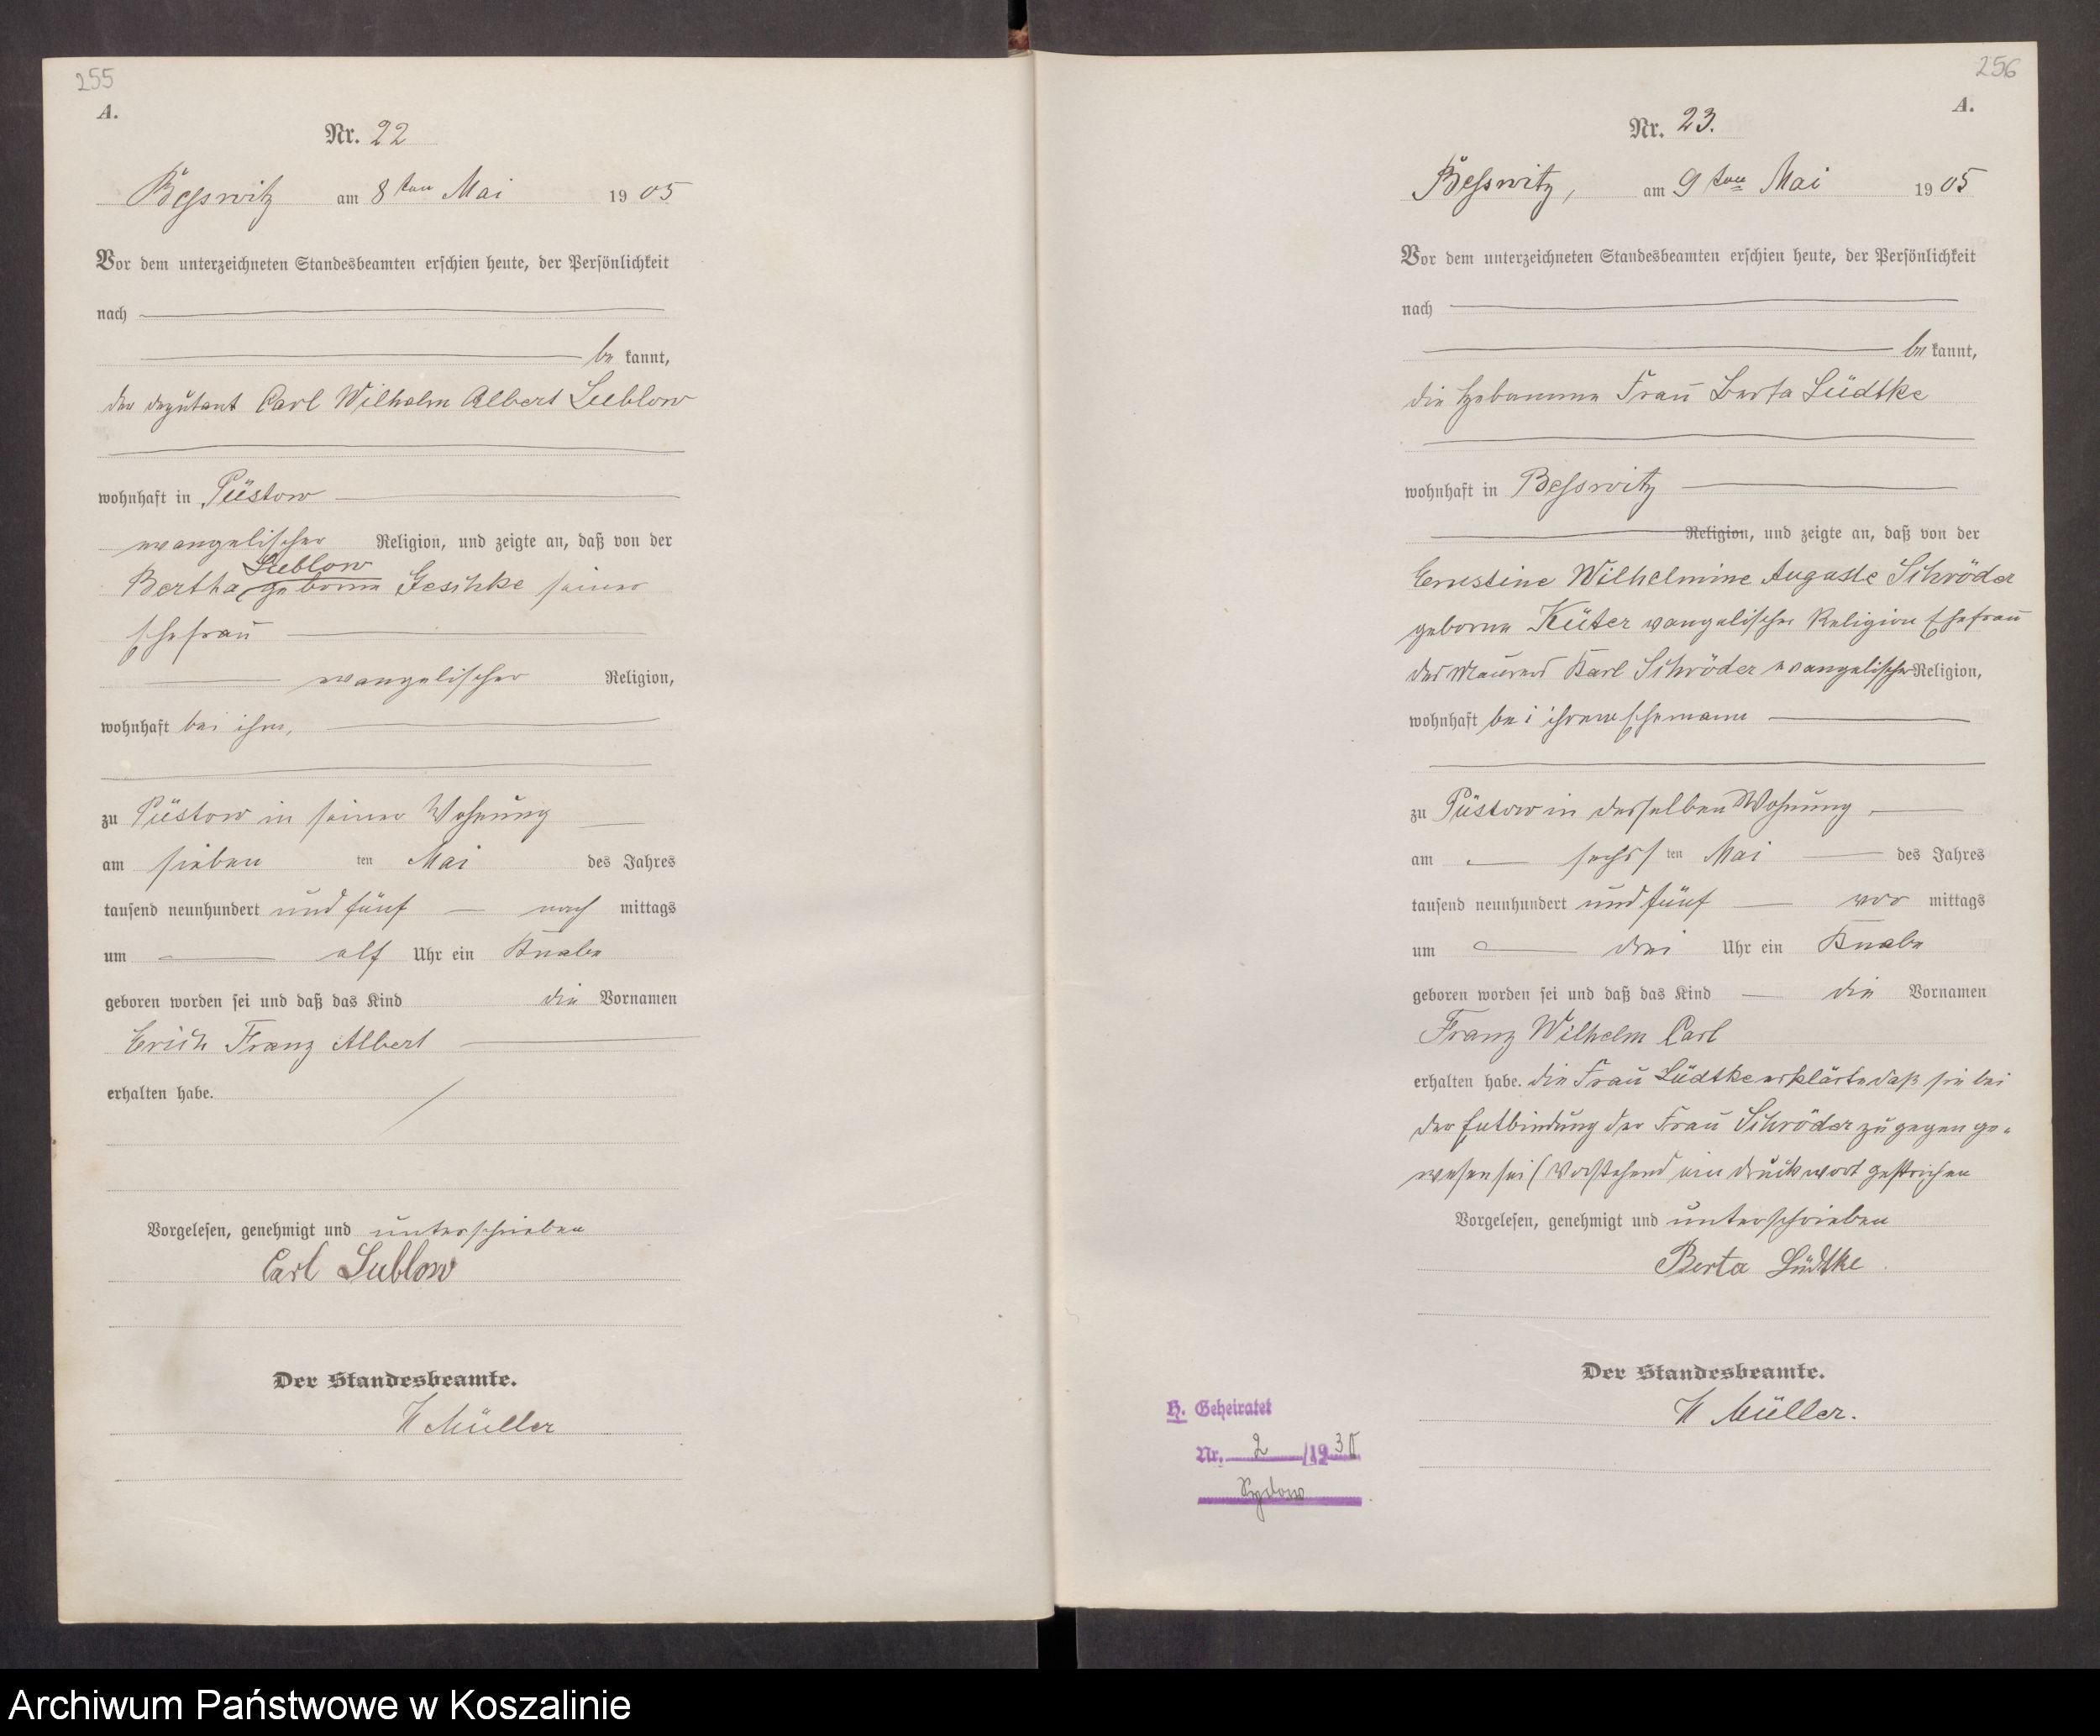 255
A.
Nr. 22
Besswitz am 8ten Mai 1905
Vor dem unterzeichneten Standesbeamten erschien heute, der Persönlichkeit
nach
be kannt,
der deputant Carl Wilhelm Albert Lüblow
wohnhaft in Püstow
evangelischer Religion, und zeigte an, daß von der
Lüblow
Bertha, geborne Geschke seiner
Ehefrau
evangelischer Religion,
wohnhaft bei ihm,
zu Püstow in seiner Wohnung
am sieben ten Mai des Jahres
tausend neunhundert und fünf nach mittags
um elf Uhr ein Knabe
geboren worden sei und daß das Kind die Vornamen
Erich Franz Albert
erhalten habe.
Vorgelesen, genehmigt und unterschrieben
Carl Lublow
Der Standesbeamte.
Müller
256
A.
Nr. 23.
Besswitz, am 9ten Mai 1905
Vor dem unterzeichneten Standesbeamten erschien heute, der Persönlichkeit
nach
be kannt,
die Hebamme Frau Berta Lüdtke
wohnhaft in Besswitz
Religion, und zeigte an, daß von der
Ernestine Wilhelmine Auguste Schröder
geborne Küter evangelischer Religion Ehefrau
des Maurers Karl Schröder evangelischer Religion,
wohnhaft bei ihrem Ehemann
zu Püstow in desselben Wohnung
am sechs ten Mai des Jahres
tausend neunhundert und fünf vor mittags
um drei Uhr ein Knabe
geboren worden sei und daß das Kind die Vornamen
Franz Wilhelm Carl
erhalten habe. die Frau Lüdtke erklärte daß sie bei
der Entbindung der Frau Schröder zugegen ge-
wesen sei (Vorstehend ein Druckwort gestrichen
Vorgelesen, genehmigt und unterschrieben
Berta Lüdtke
Der Standesbeamte.
Müller.
H. Geheiratet
Nr. 2 /193
Sydow
Archiwum Państwowe w Koszalinie